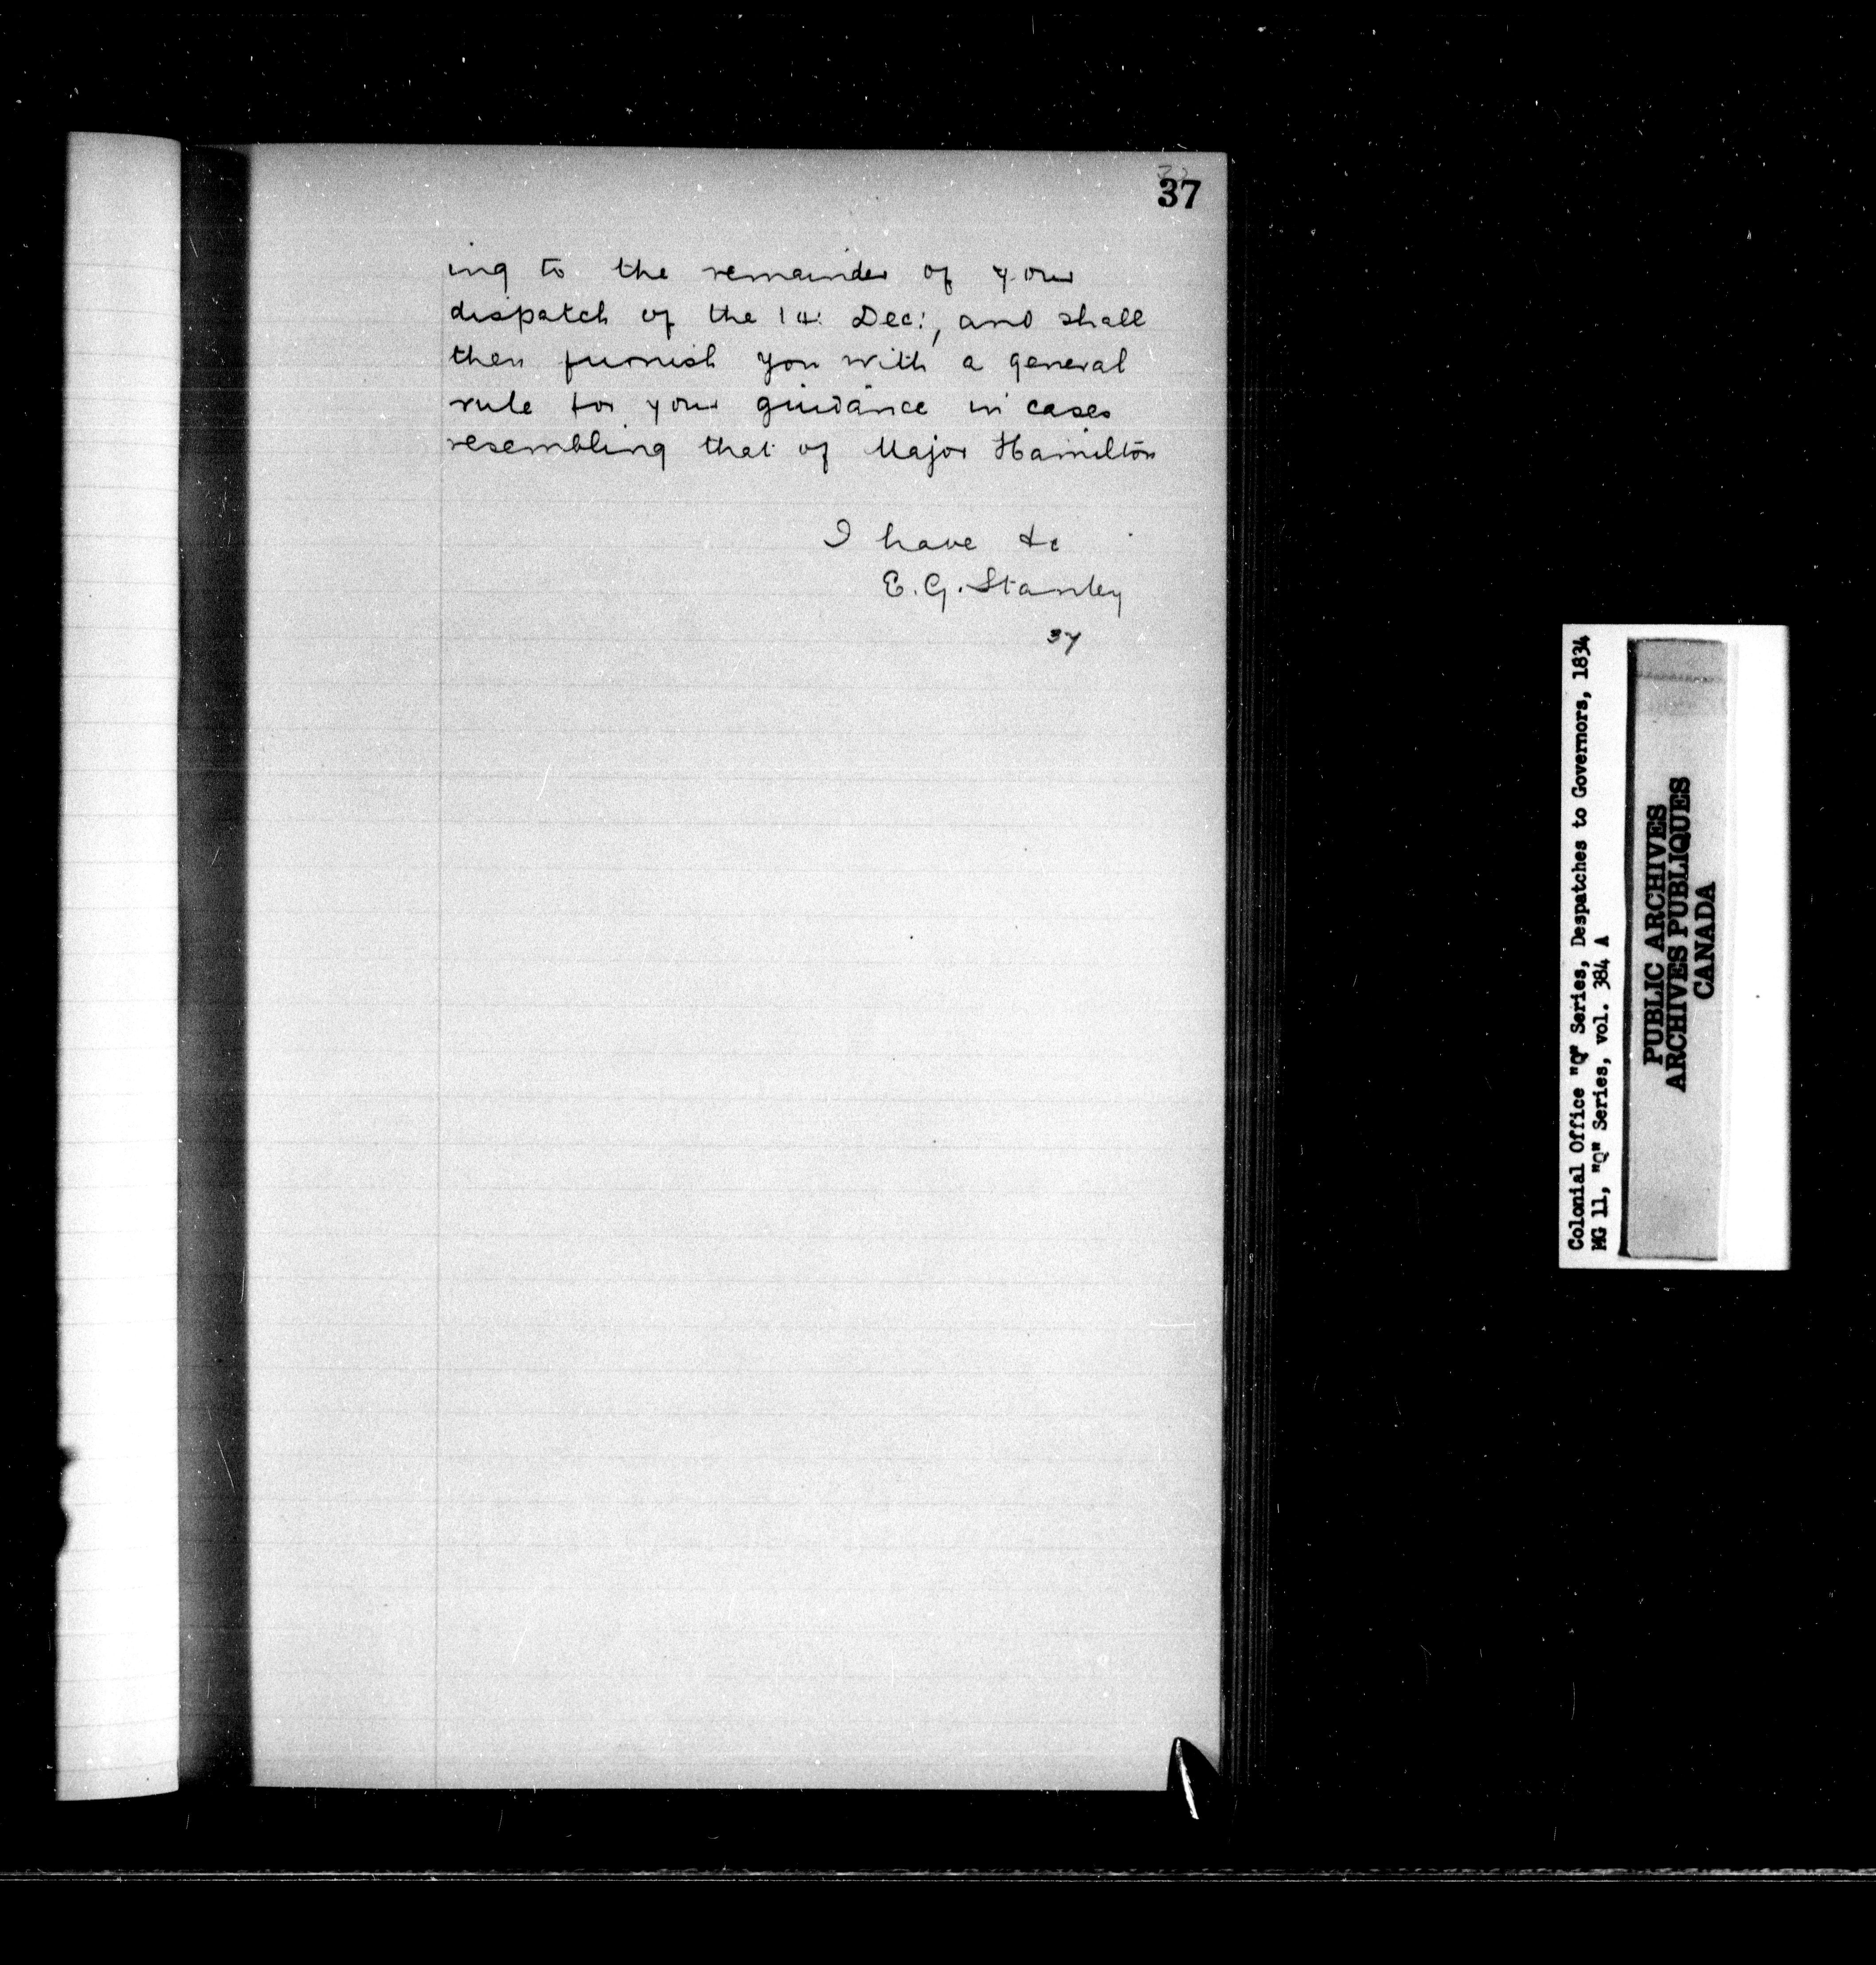 37
ing to the remainder of your
dispatch of the 14: Dec:, and shall
then furnish you with a general
rule for your guidance in cases
resembling that of Major Hamilton
I have &c
E. G. Stanley
37
Colonial Office "Q" Series, Despatches to Governors, 1834
MG 11, "Q" Series, vol. 384 A
PUBLIC ARCHIVES
ARCHIVES PUBLIQUES
CANADA